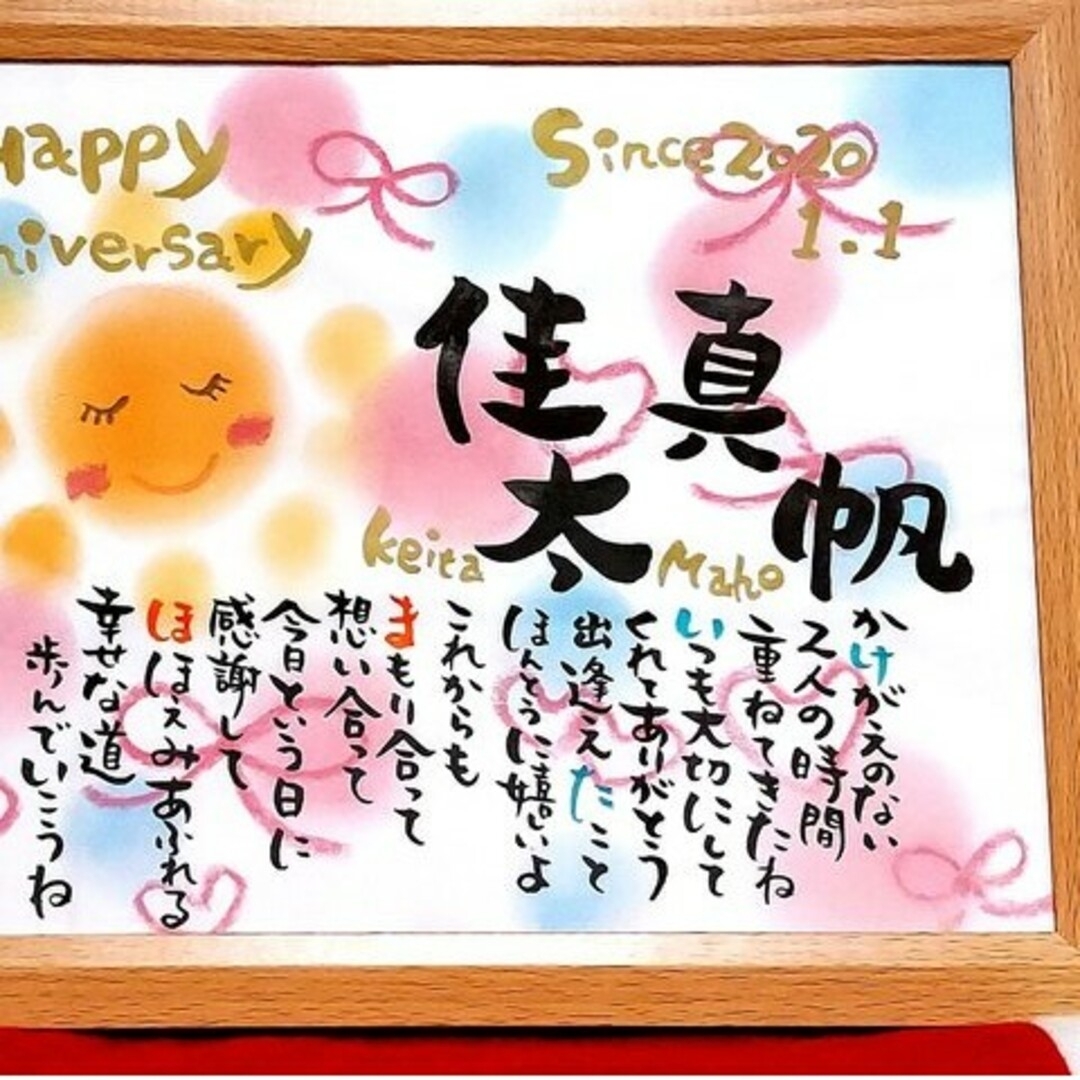 Happy
niversary
Since2020
1.1
佳太
真帆
Keita
Maho
かけがえのない
2人の時間
重ねてきたね
いつも大切にして
くれてありがとう
出逢えたこと
ほんとうに嬉しいよ
これからも
まもり合って
想い合って
今日という日に
感謝して
ほほえみあふれる
幸せな道
歩んでいこうね